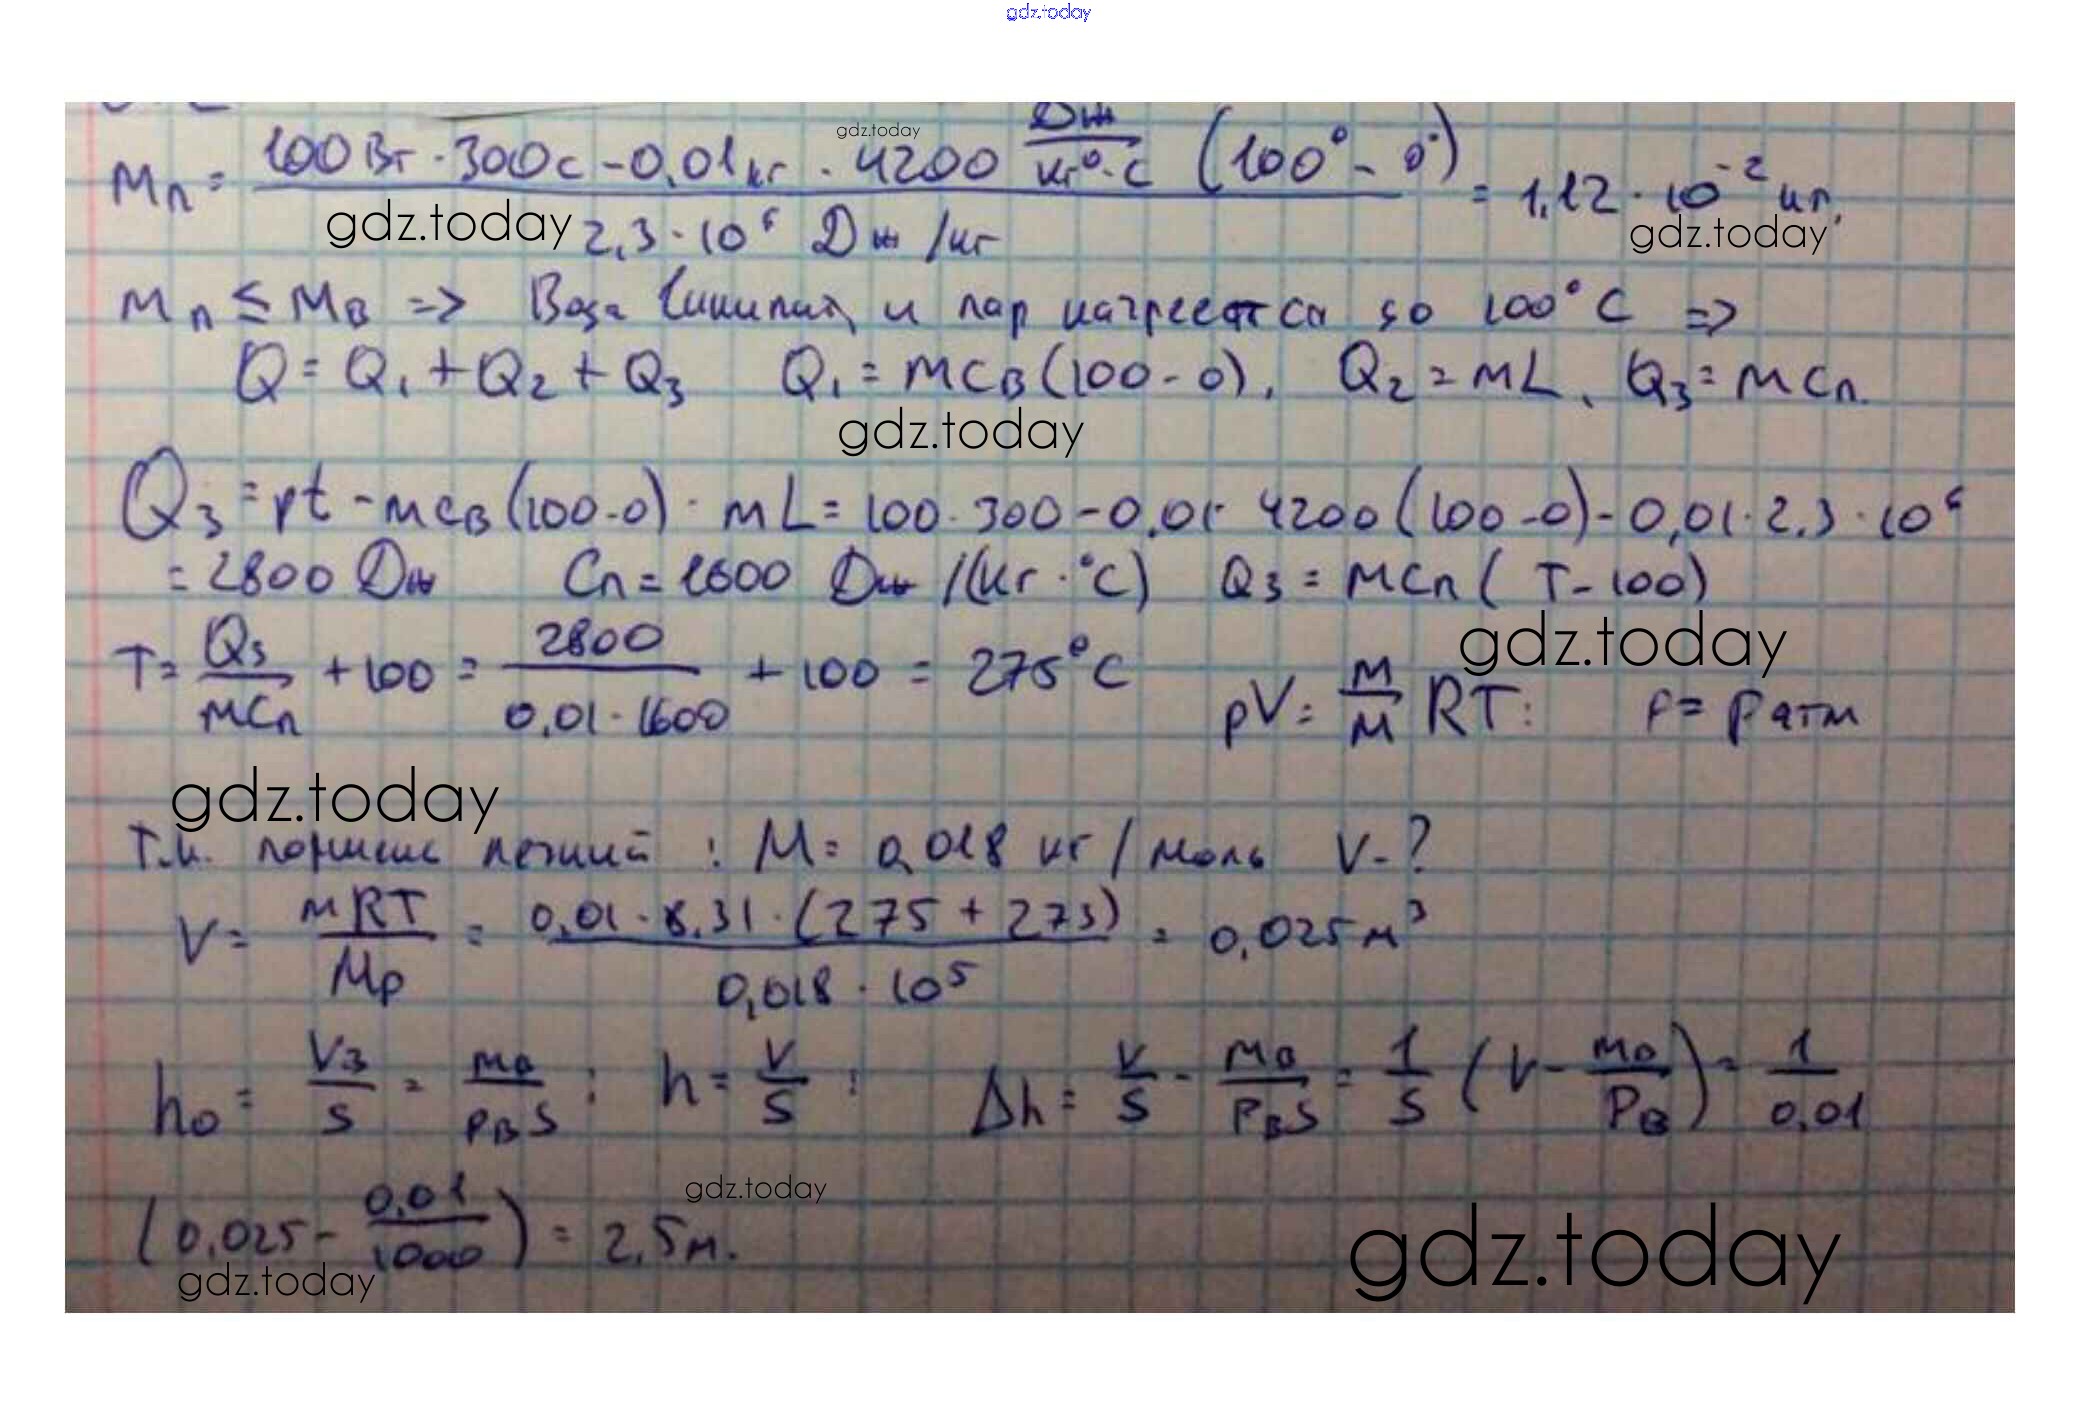 gdz.today
gdz.today
Mп = 100Вт · 300с - 0,01кг · 4200 Дж/кг°·С (100° - 0°) / 2,3 · 10⁶ Дж/кг = 1,12 · 10⁻² кг,
gdz.today gdz.today
Mп ≤ Mв => Вода и пар нагреется до 100°С =>
Q = Q₁ + Q₂ + Q₃ Q₁ = mCв(100-0), Q₂ = mL, Q₃ = mCп.
gdz.today
Q₃ = pt - mCв(100-0) · mL = 100 · 300 - 0,01 · 4200(100-0) - 0,01 · 2,3 · 10⁶
= 2800 Дж Cп = 1600 Дж/(кг·°С) Q₃ = mCп(T-100)
gdz.today
T = Q₃/mCп + 100 = 2800/0,01·1600 + 100 = 275°С pV = m/M RT: p = pатм
gdz.today
Т.к. поршень легкий : M = 0,018 кг/моль V-?
V = mRT/Mp = 0,01 · 8,31 · (275 + 273)/0,018 · 10⁵ = 0,025 м³
h₀ = Vв/S = mв/pвS ; h = V/S ; Δh = V/S - mв/pвS = 1/S (V - mв/pв) = 1/0,01
gdz.today
(0,025 - 0,01/1000) = 2,5м.
gdz.today
gdz.today